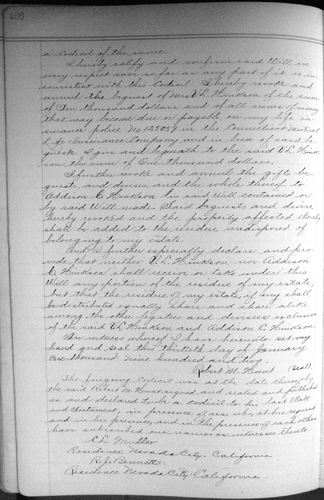 a Codicil of the same.
I hereby ratify and confirm said Will in
every respect save so far as any part of it is in-
consistent with this Codicil. I hereby revoke and
annul the bequest of Mrs. V. L. Hinkson of the sum
of One thousand dollars and of all sums of money
that may become due or payable on my life in-
surance police No 135059 in the Connecticut Mutual
Life Insurance Company and in lieu of said be-
quest I give and bequeath to the said V. L. Hinkson
the sum of One thousand dollars.
I further revoke and annul the gifts be-
quests, and devises, and the whole thereof to
Addison C. Hinkson in said Will contained or
by said Will made. Said bequests and devise
hereby revoked and the property affected thereby
shall be added to the residue undisposed of
belonging to my estate.
And I further especially declare and pro-
vide that neither V. L. Hinkson nor Addison
C. Hinkson shall receive or take under this
Will any portion of the residue of my estate,
but that the residue of my estate, if any shall
be distributed equally share and share alike
among the other legatees and devisees exclusive
of the said V. L. Hinkson and Addison C. Hinkson.
In witness whereof I have hereunto set my
hand and seal this thirtieth day of January
one thousand nine hundred and two
Robert M. Hunt (Seal)
The foregoing Codicil was at the date thereof by
the said Robert M. Hunt signed and sealed and published
as and declared to be a Codicil to his last Will
and Testament, in presence of us who, at his request
and in his presence, and in the presence of each other
have subscribed our names as witnesses thereto
E. L. Miller
Residence Nevada City, California
R. J. Bennetts
Residence Nevada City, California.